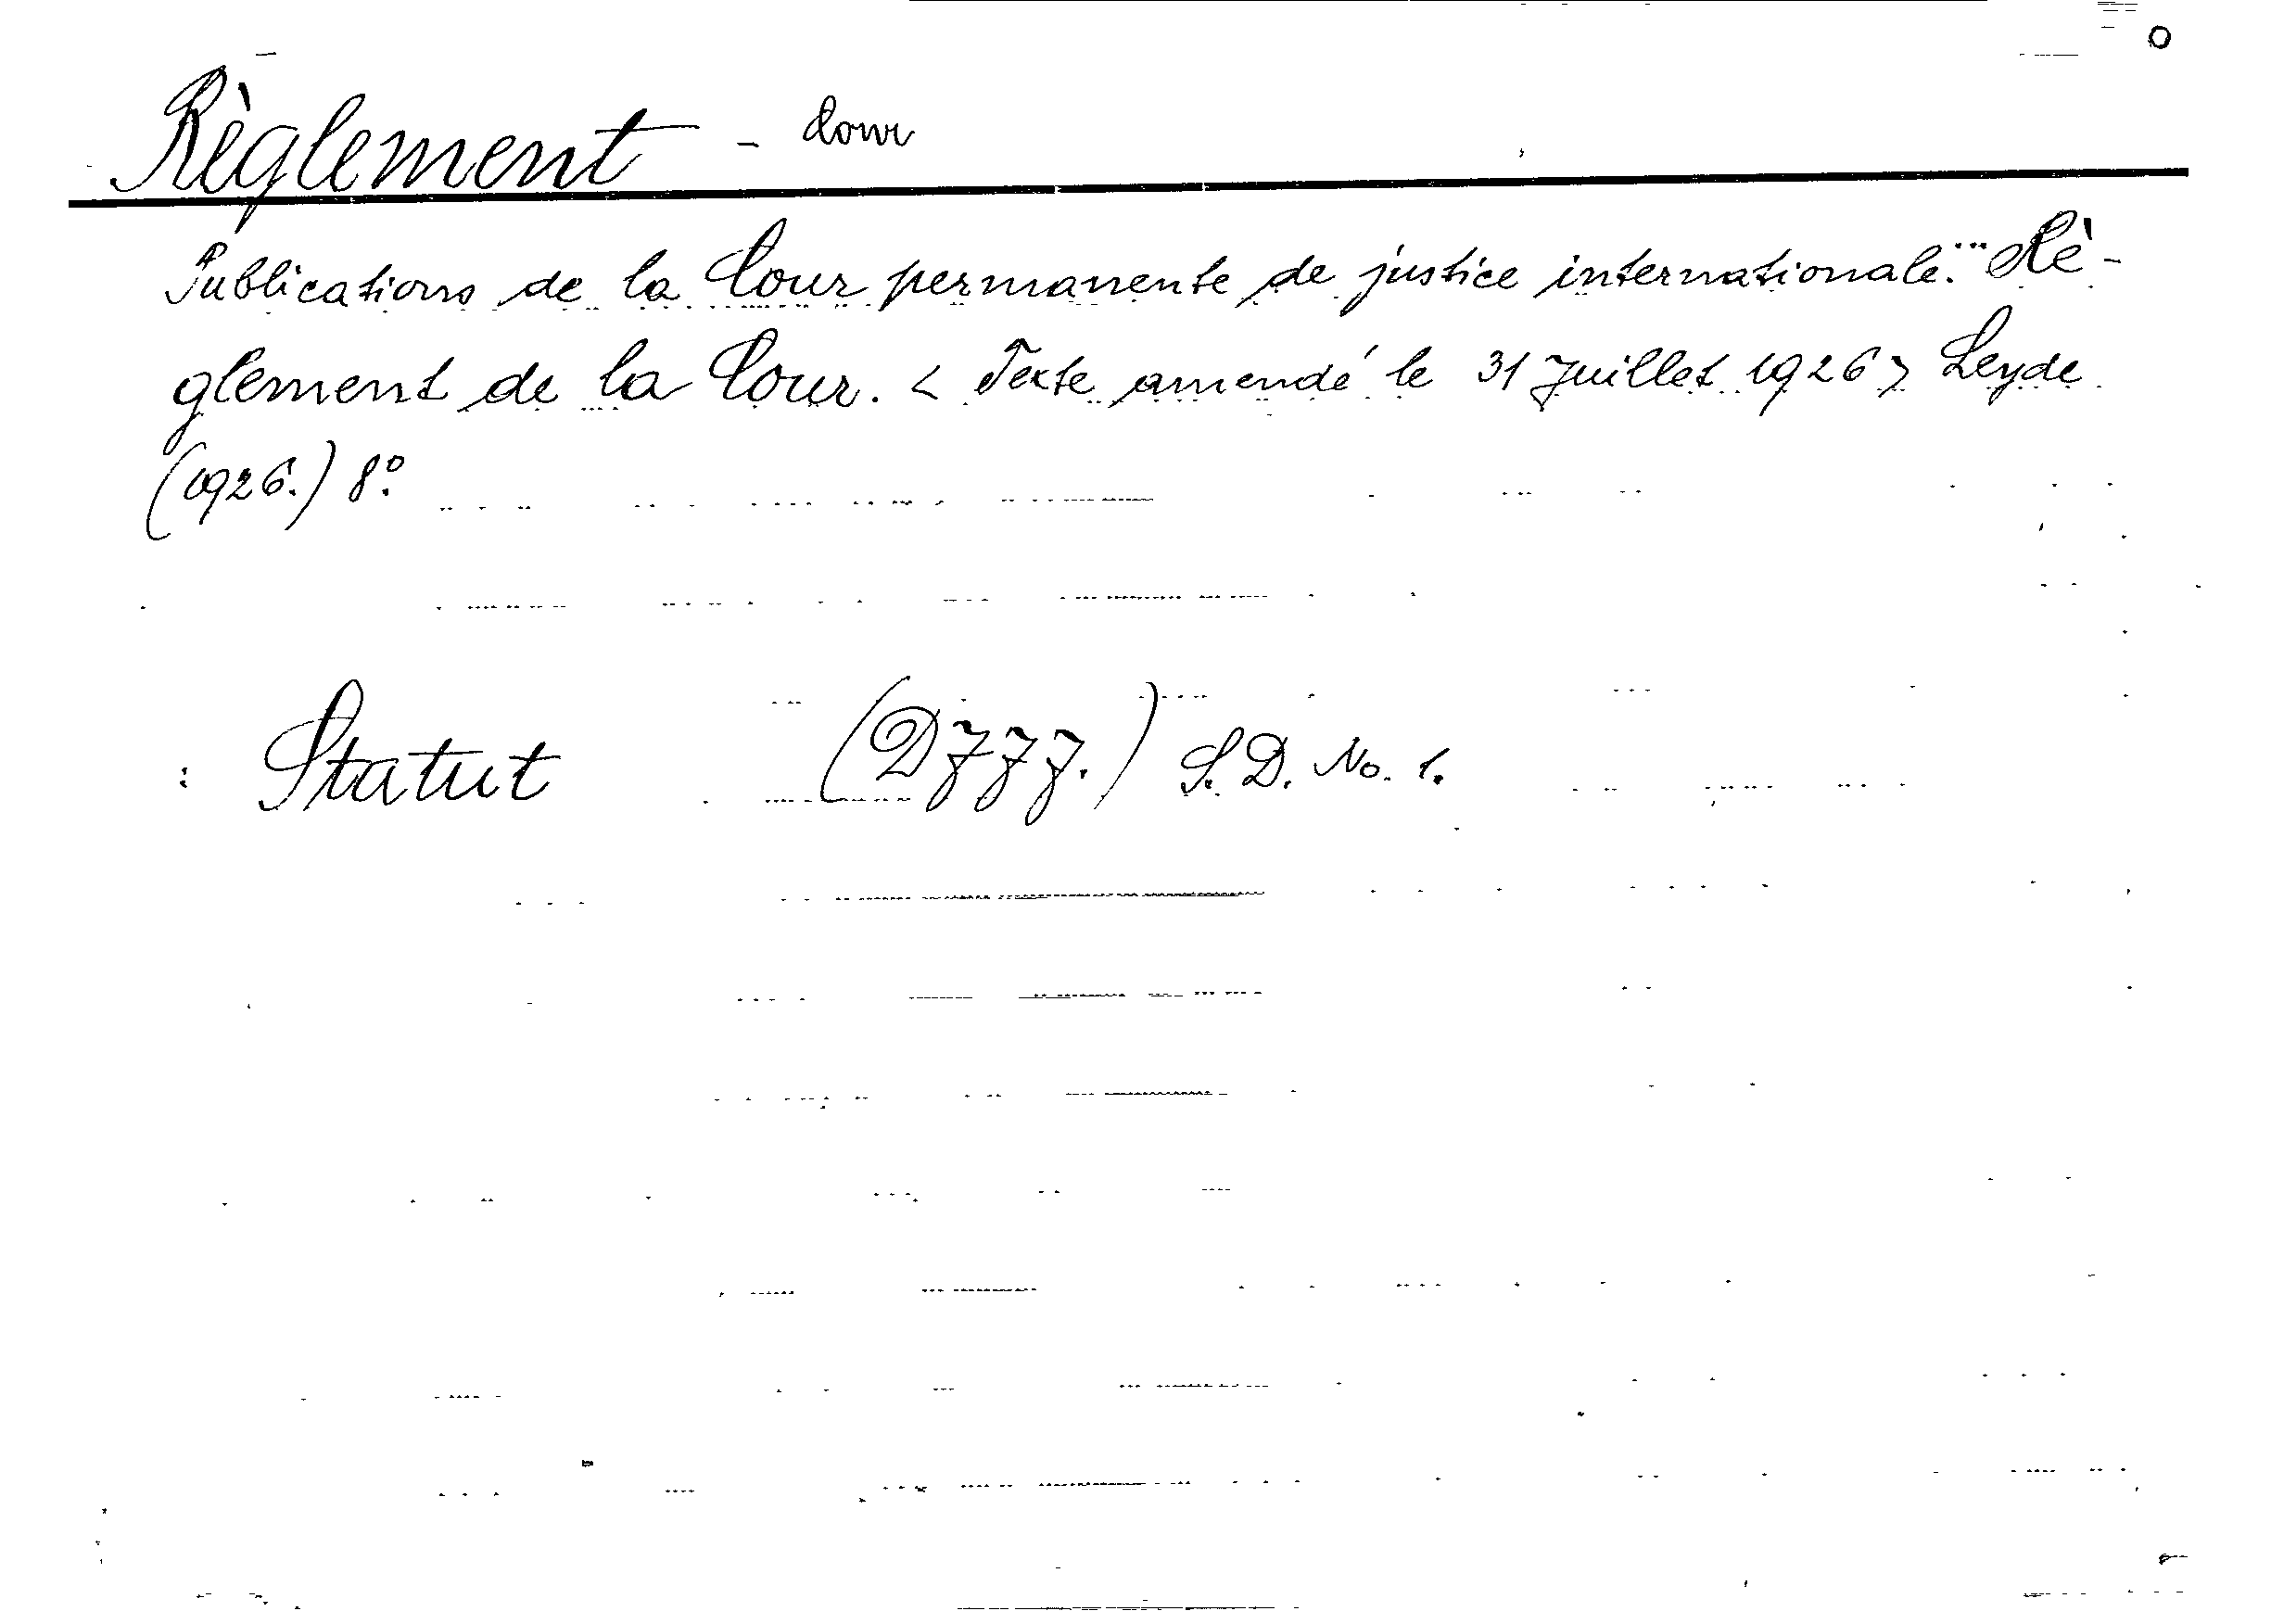 Règlement - Cour
Publications de la Cour permanente de justice internationale. ... Rè-
glement de la Cour. < Texte amendé le 31 Juillet 1926 > Leyde
(1926.) 8°.
: Statut (DJJJ.) S. D. No. 1.